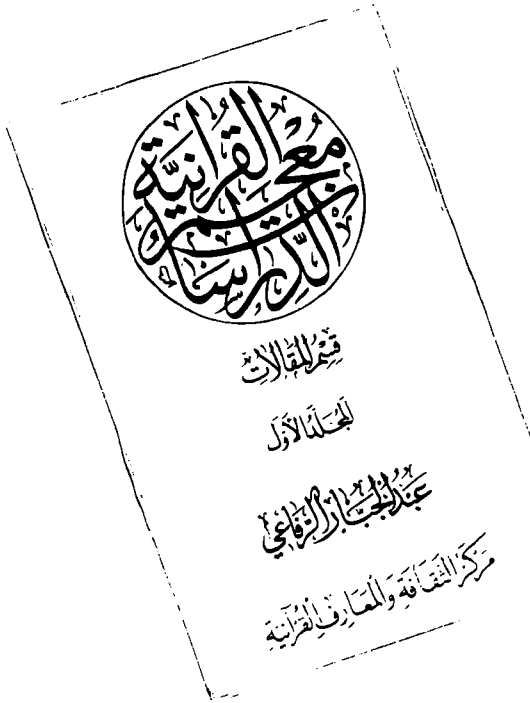 معجم الدراسات القرآنية
قسم المقالات
المجلد الأول
عبد الجبار الرفاعي
مركز الثقافة والمعارف القرآنية